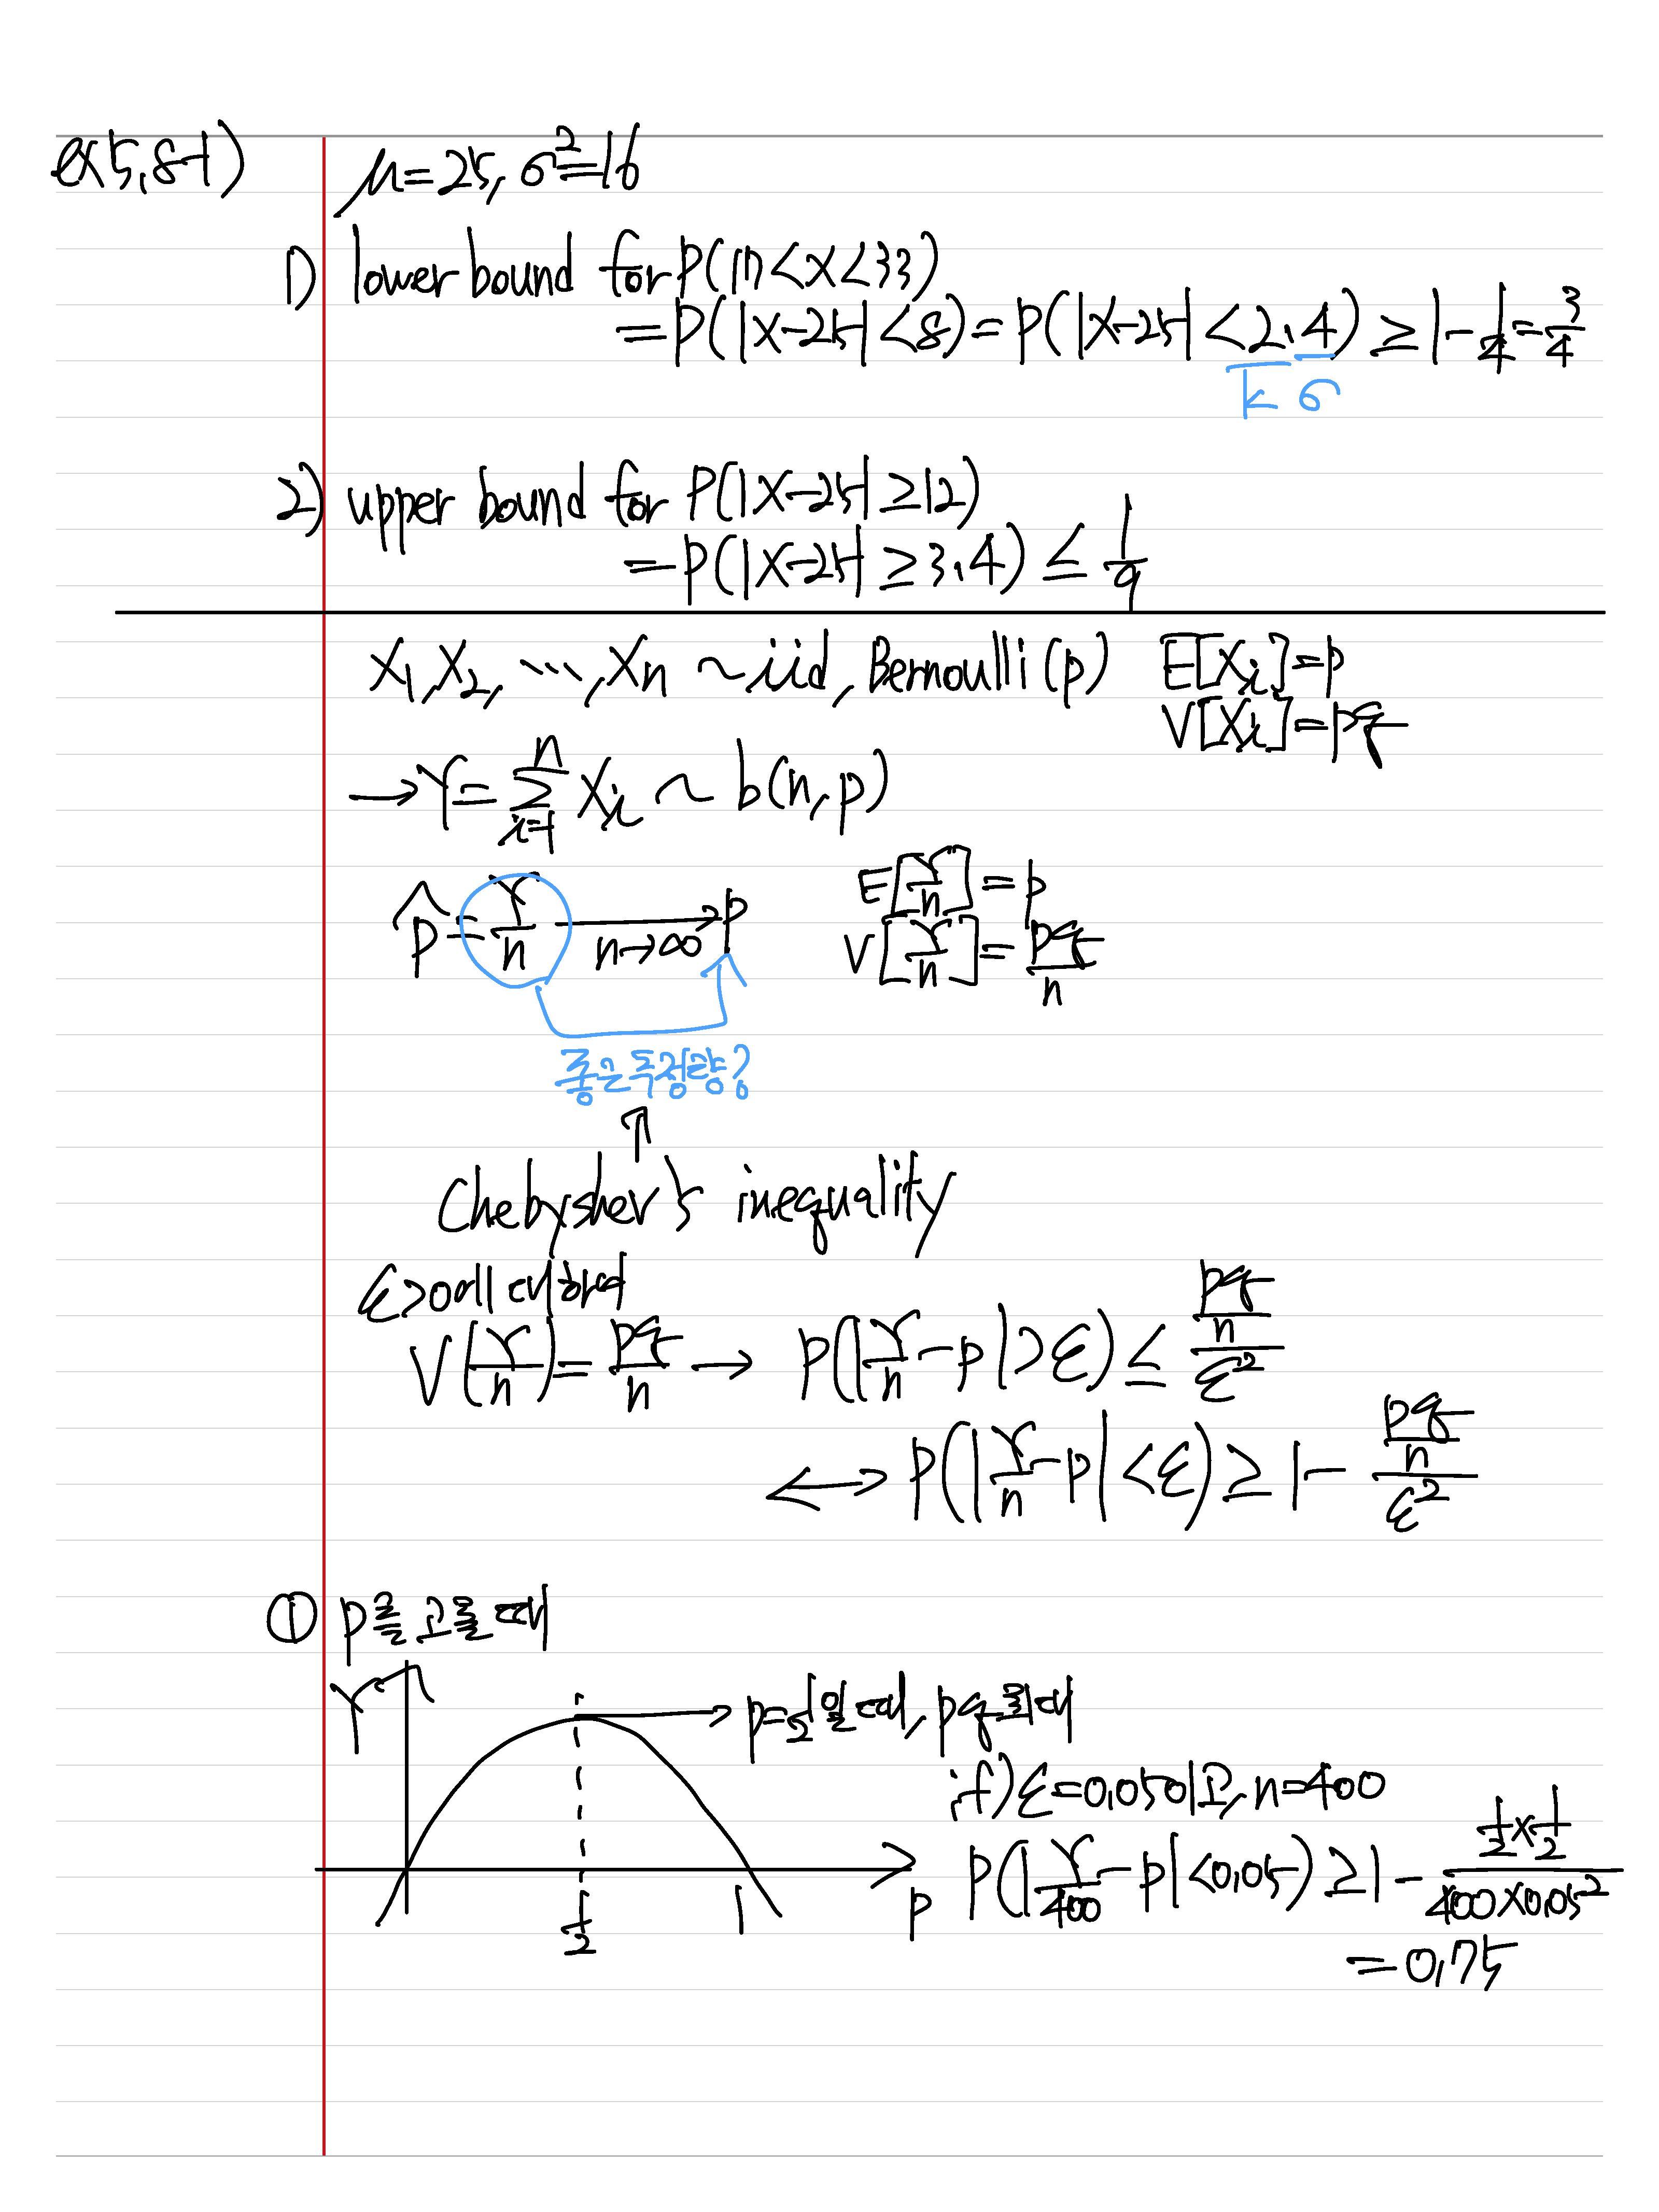 ex5.8-1) μ=25, σ²=16
1) lower bound for P(17<X<33)
=P(|X-25|<8)=P(|X-25|<2.4) ≥1-1/4=3/4
k σ
2) upper bound for P(|X-25|≥12)
=P(|X-25|≥3.4) ≤ 1/9
X₁,X₂, ⋯,Xn ~iid, Bernoulli(p) E[Xi]=p
V[Xi]=pq
→Y=∑_{i=1}^{n} Xi ~ b(n,p)
p̂=Y/n →(n→∞) p E[Y/n]=p
V[Y/n]=pq/n
좋은 추정량?
↑
Chebyshev's inequality
ε>0에 대하여
V(Y/n)=pq/n → P(|Y/n-p|>ε) ≤ (pq/n)/ε²
↔ P(|Y/n-p|<ε) ≥ 1-(pq/n)/ε²
① p를 고를 때
Y
→p=1/2일 때, pq최대
if) ε=0.05이고, n=400
P(|Y/400-p|<0.05) ≥1-(1/2×1/2)/(400×0.05²)
1/2 1 p
=0.75